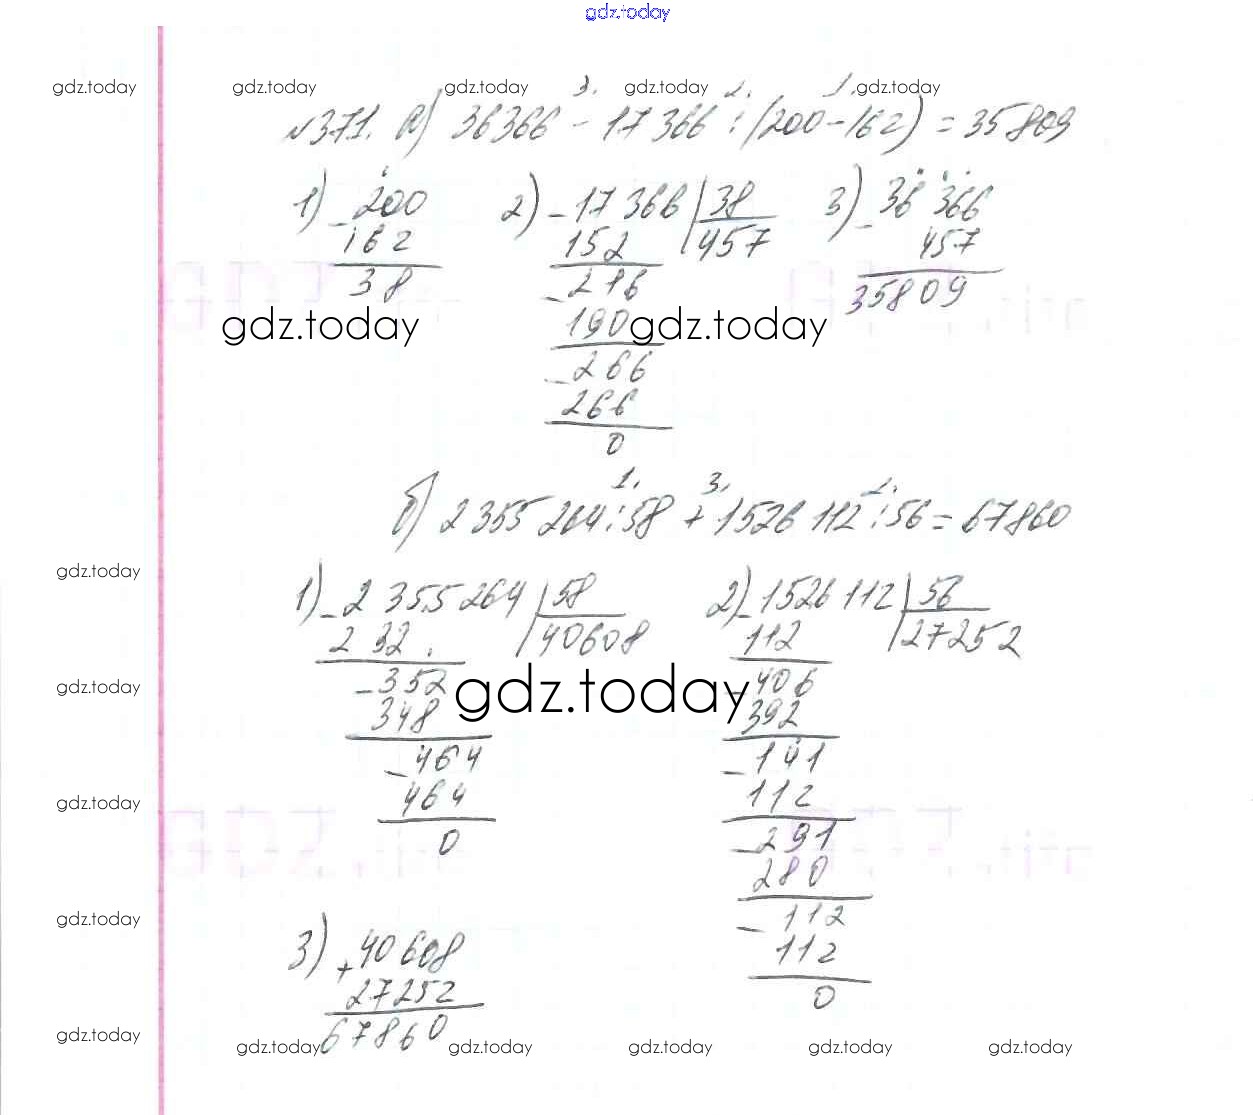 gdz.today
gdz.today gdz.today gdz.today gdz.today gdz.today
3. 2. 1.
№371. а) 36366 - 17366 : (200-162) = 35809
1) - 200
162
38
2) - 17366 | 38
152 | 457
- 216
190
- 266
266
0
3) - 36366
457
35809
gdz.today gdz.today
1. 3. 2.
б) 2355264 : 58 + 1526112 : 56 = 67860
gdz.today
1) - 2355264 | 58
232 | 40608
- 352
348
- 464
464
0
2) - 1526112 | 56
112 | 27252
- 406
392
- 141
112
- 291
280
- 112
112
0
gdz.today gdz.today
gdz.today
gdz.today
3) + 40608
27252
67860
gdz.today gdz.today gdz.today gdz.today gdz.today gdz.today